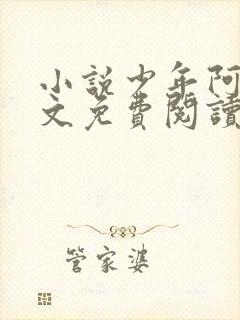 小說少年阿
文免費閱讀
管家婆